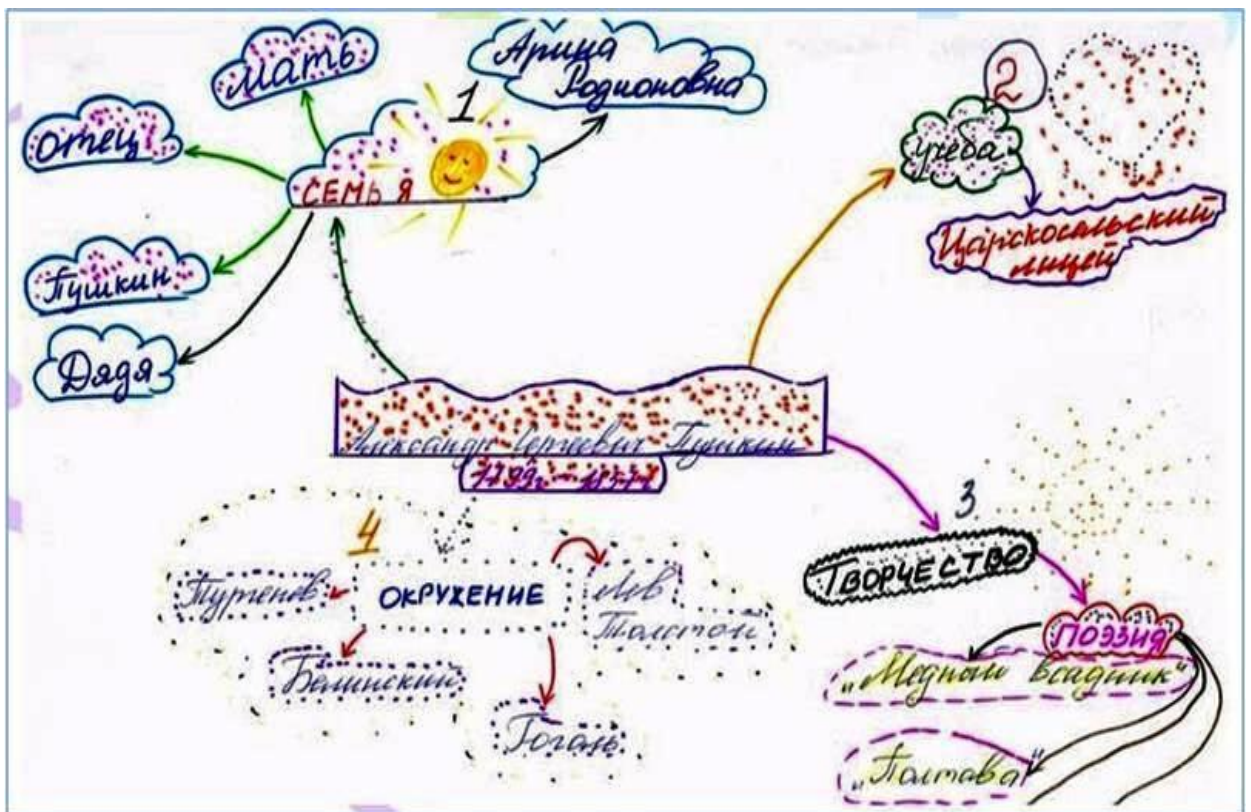 Александр Сергеевич Пушкин
1799г - 1837г
1
СЕМЬЯ
Мать
Отец
Пушкин
Дядя
Арина
Родионовна
2
Учёба
Царскосельский
лицей
3
ТВОРЧЕСТВО
ПОЭЗИЯ
„Медный всадник"
„Полтава"
4
ОКРУЖЕНИЕ
Тургенев
Белинский
Гоголь
Лев
Толстой